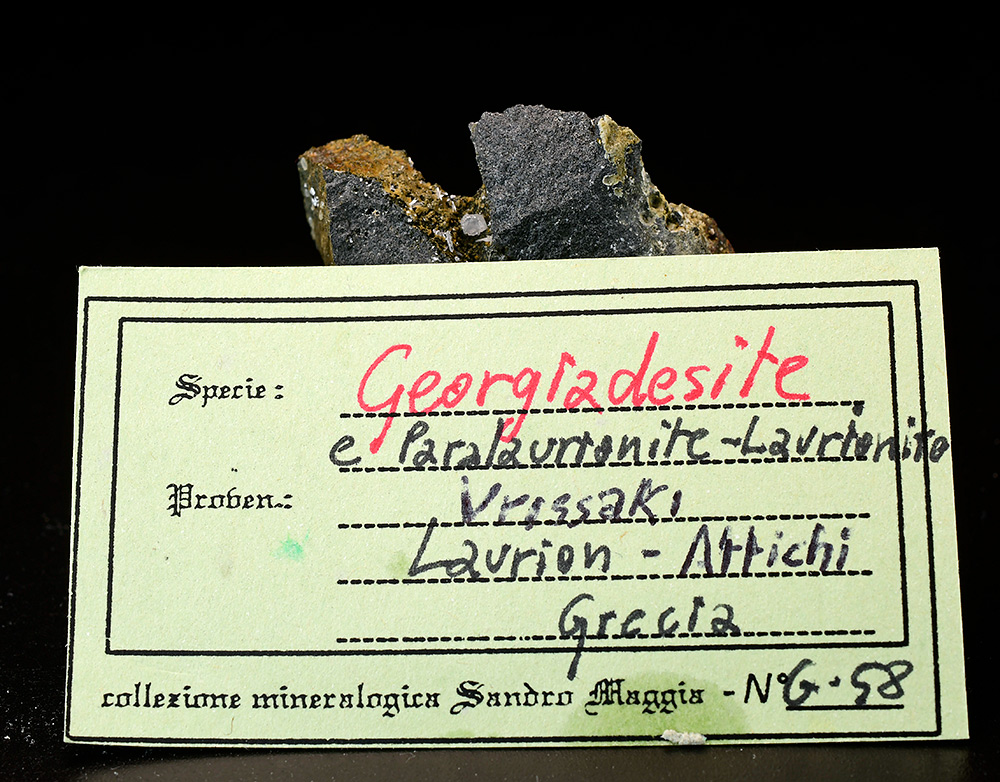 Specie: Georgiadesite
e Paralaurionite-Laurionite
Proven.: Vrissaki
Laurion - Attichi
Grecia
collezione mineralogica Sandro Maggia - N° G-58